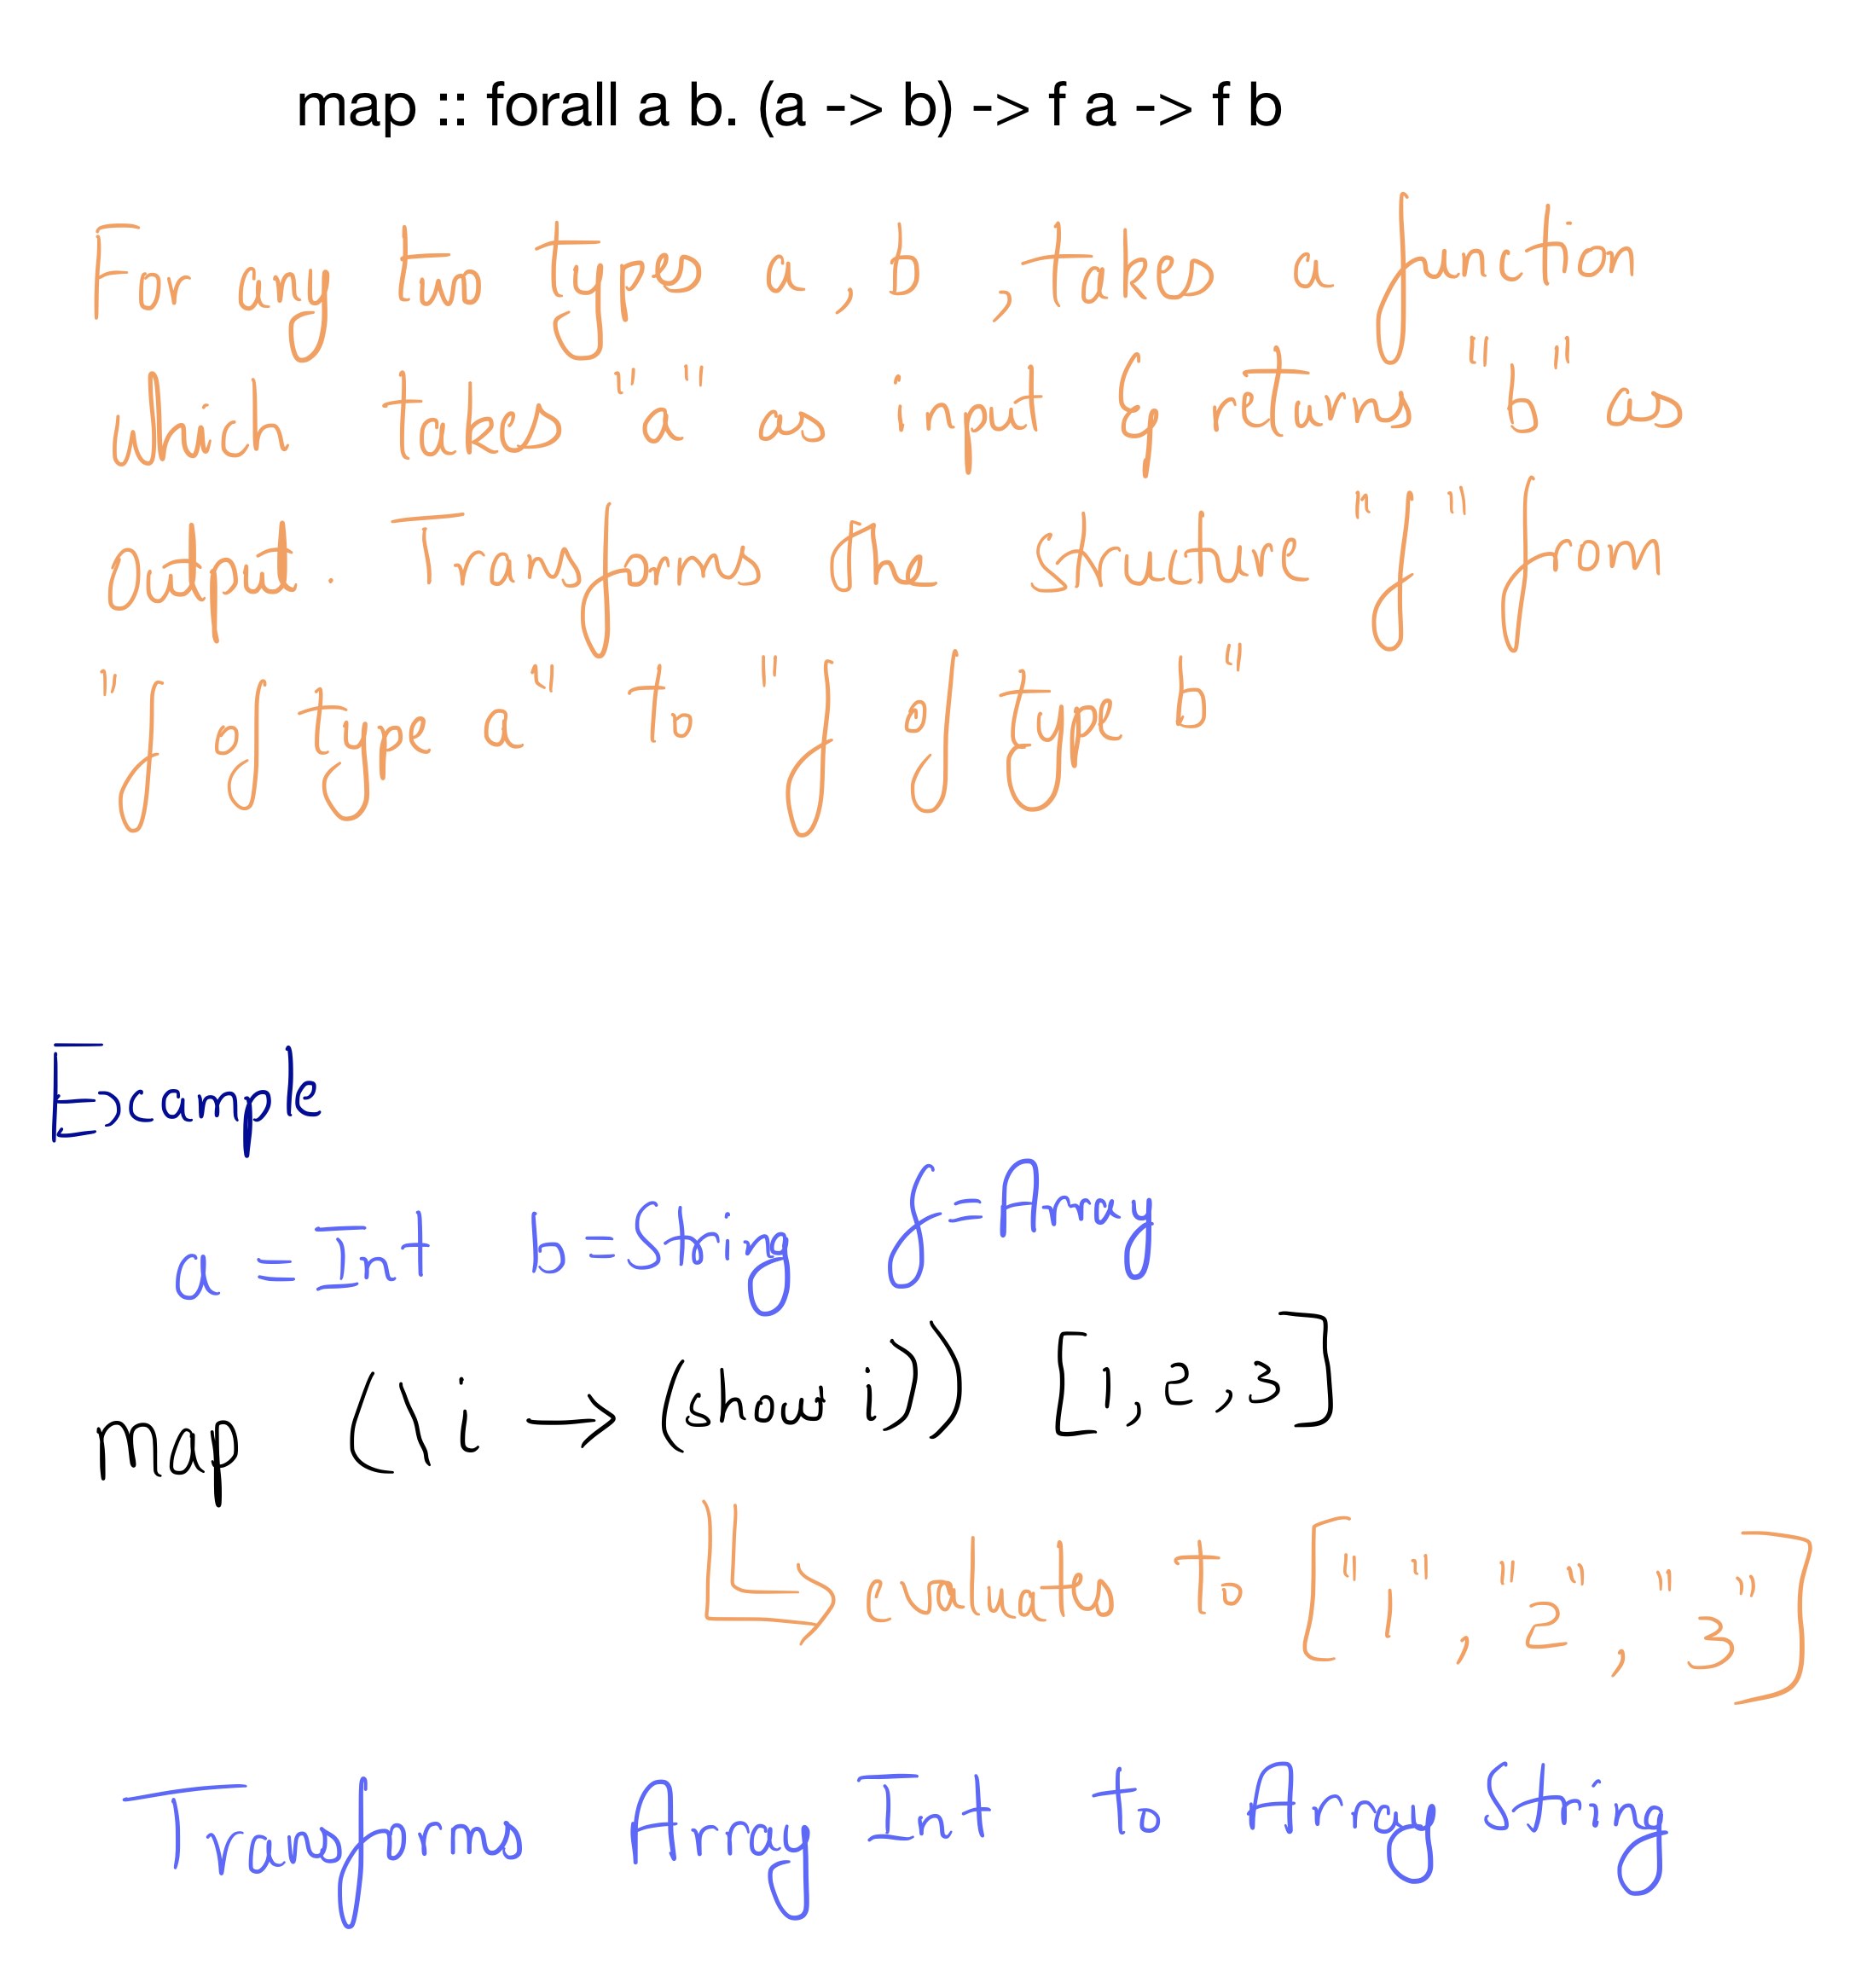 map :: forall a b. (a -> b) -> f a -> f b
For any two types a, b, takes a function
which takes "a" as input & returns "b" as
output. Transforms the structure "f" from
"f of type a" to "f of type b"
Example
a = Int b = String f = Array
map (\i → (show i)) [1,2,3]
evaluates to ["1", "2", "3"]
Transforms Array Int to Array String